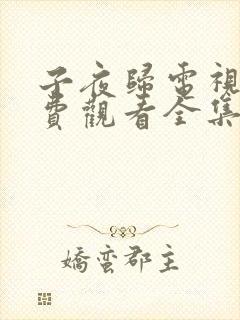 子夜歸電視
費觀看全集
嬌蠻郡主